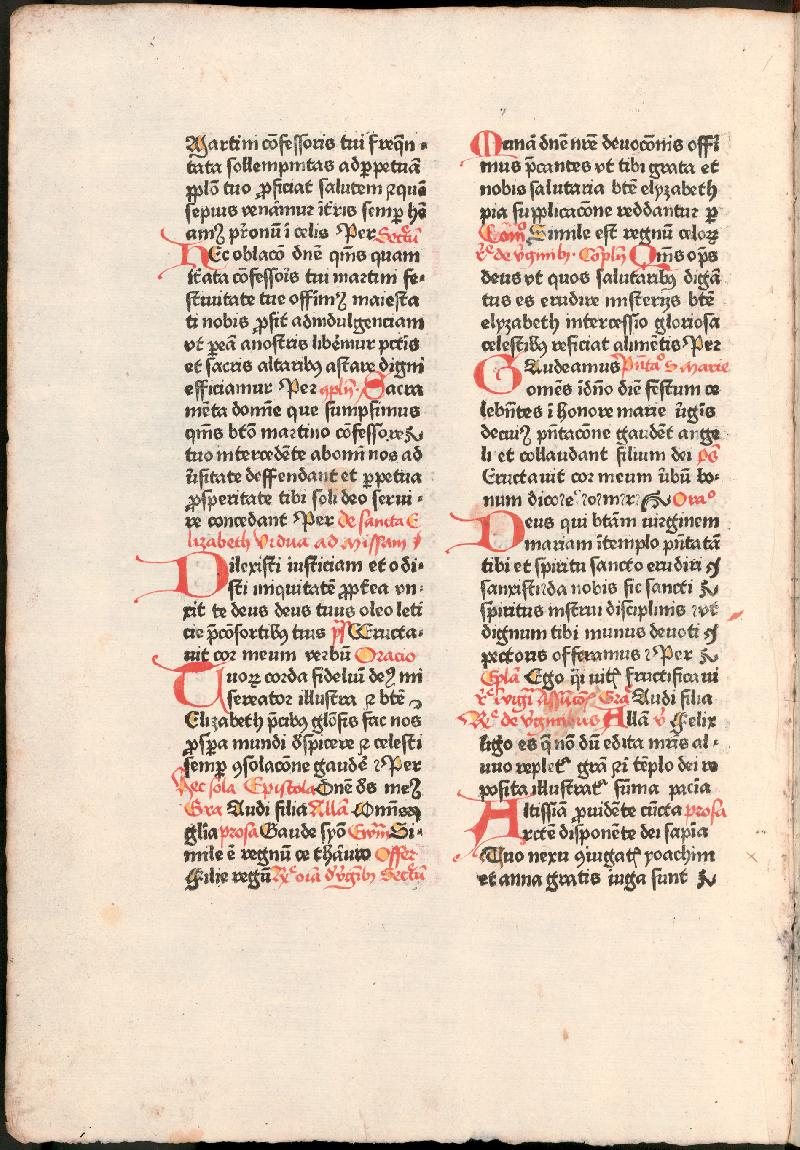 Martini cōfessoris tui freqn̄
tata sollempnitas ad ꝑpetuā
ꝓplō tuo ꝓficiat salutem ꝛ quē
sepius venāmur ī tr̄is semꝑ hē
amꝰ pr̄onū ī celis Per Secͤtū
Hec oblacō dnē qm̄s quam
ītata cōfessoris tui martini fe
stiuitate tue offimꝰ maiesta
ti nobis ꝓsit ad indulgenciam
vt ꝑ eā a nostris libēmur pctīs
et sacris altaribꝰ astare digni
efficiamur Per 9pln̄ Sacra
mēta domīe que sumpsimus
qm̄s btō martino cōfessore
tuo intercedēte ab om̄i nos ad
ūsitate deffendant et ꝑpetua
ꝓsperitate tibi soli deo serui
re concedant Per de sancta E
lizabeth vidua ad missam
Dilexisti iusticiam et odi
sti iniquitatē ꝓpt̄ea vn
xit te deus deus tuus oleo leti
cie p̄ cōsortibꝰ tuis ps̄ Eructa
uit cor meum verbū Oracio
Tuoꝝ corda fideliū deꝰ mi
serator illustra ꝛ btē
Elizabeth p̄cibꝰ glōsis fac nos
ꝓspa mundi dspicere ꝛ celesti
semꝑ 9solacōne gaudē Per
hec sola Epistola Dnē ds̄ meꝰ
Gra Audi filia Allā Om̄is
glia prosa Gaude spō Ewm̄ Si
mile ē regnū ce thāuro Offer
Filie regū Rͤ oīa d v̄gībꝰ Secͤtū
Munā dnē nrē deuocōnis offi
mus p̄cantes vt tibi grata et
nobis salutaria btē elyzabeth
pia supplicacōne reddantur ꝑ
Cōmͦ Simile est regnū celoꝝ
Rͤ de v̄ginibꝰ Cōpln̄ Om̄s ops̄
deus vt quos salutaribꝰ digā
tus es erudire misterijs btē
elyzabeth intercessio gloriosa
celestibꝰ reficiat alimētis Per
Gaudeamus Pn̄taͦ S Marie
omēs ī dnō diē festum ce
lebrn̄tes ī honore marie v̄gīs
de cuiꝰ pn̄tacōne gaudēt ange
li et collaudant filium dei ps̄
Eructauit cor meum v̄bū bo
num dico Oraͦ
Deus qui btām virginem
mariam ī templo pn̄tatā
tibi et spiritu sancto erudiri
sanxisti da nobis sic sancti
spiritus instrui disciplinis vt
dignum tibi munus deuoti
pectoris offeramus Per
Eplā Ego q̄i vitꝭ fructificaui
Gra Audi filia
Rͤ de v̄ginibus Allā v̄ Felix
ligo es q̄ nō dū edita mr̄is al
uuo repletꝰ grā ꝛ ī tēplo dei re
posita illustratꝰ sūma pacia
Altissiā ꝓuidēte cūcta prosa
rctē disponēte dei sapīa
Tuo nexu 9iugatꝭ yoachim
et anna gratis iuga sunt